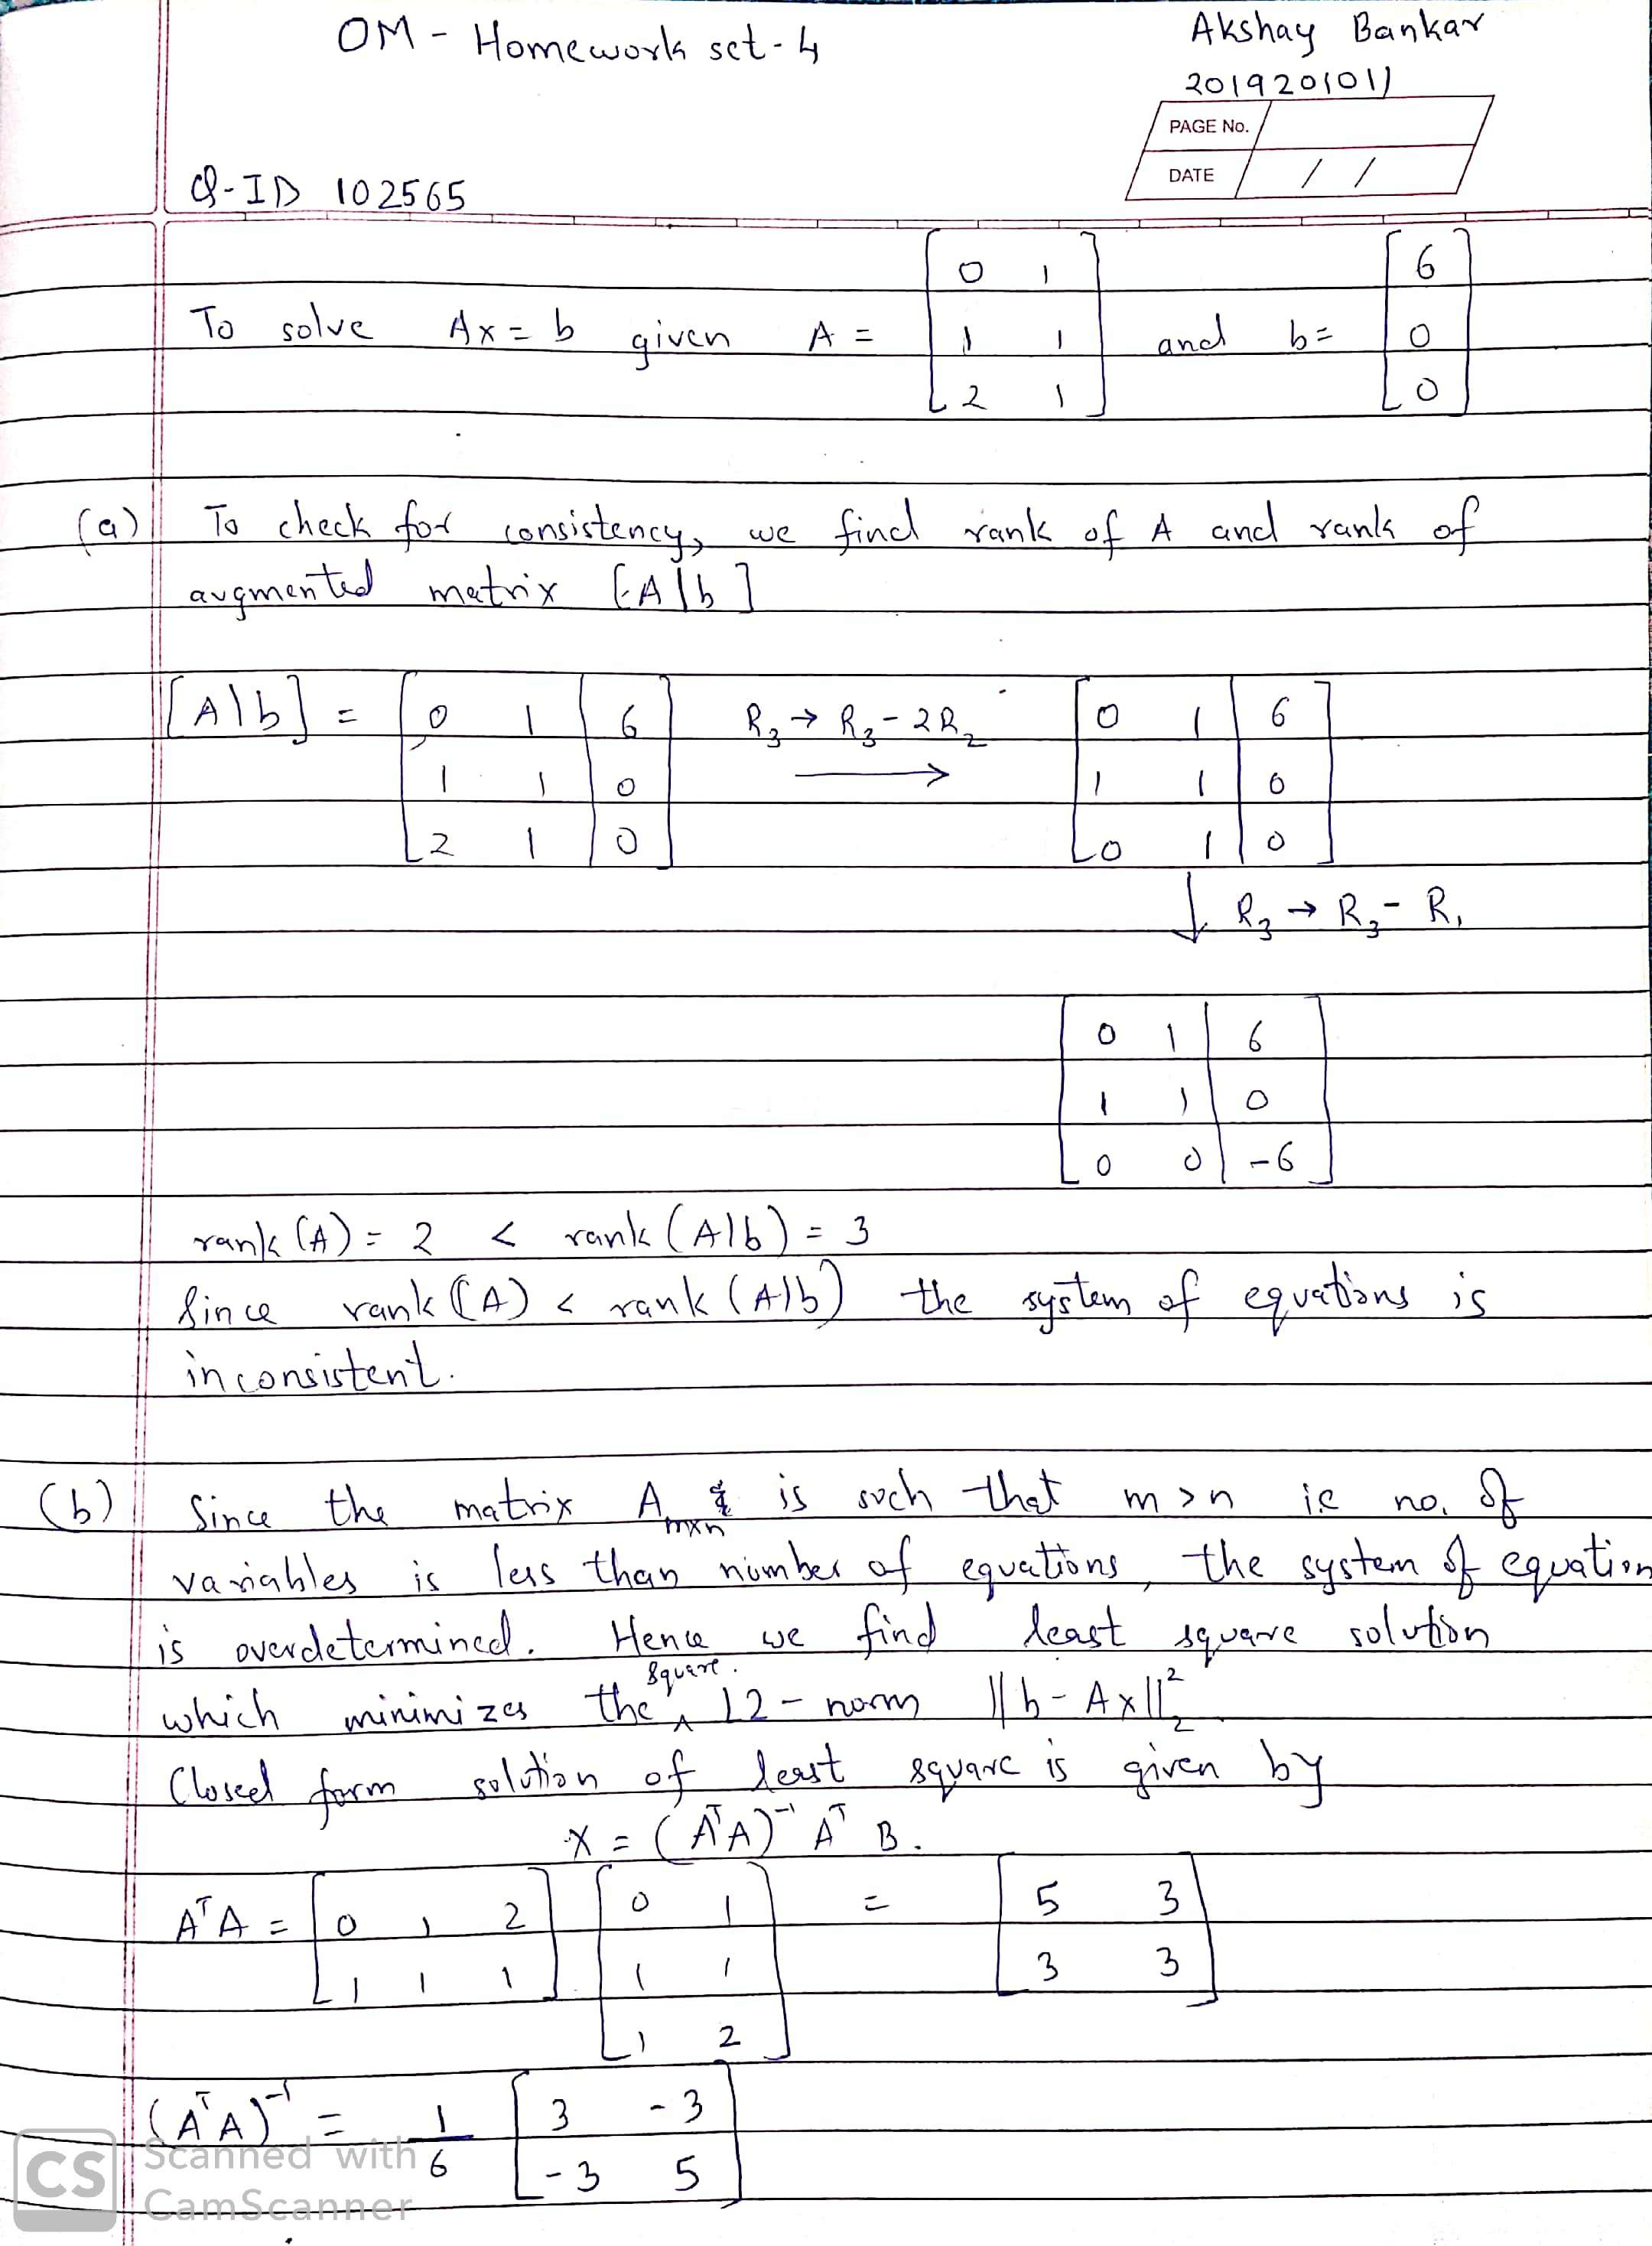 OM - Homework set-4
Akshay Bankar
2019201011
PAGE No.
DATE / /
Q-ID 102565
To solve Ax = b given A = [0 1; 1 1; 2 1] and b = [6; 0; 0]
(a) To check for consistency, we find rank of A and rank of
augmented matrix [A|b]
[A|b] = [0 1 | 6; 1 1 | 0; 2 1 | 0] R₃ → R₃ - 2R₂ → [0 1 | 6; 1 1 | 0; 0 1 | 0]
↓ R₃ → R₃ - R₁
[0 1 | 6; 1 1 | 0; 0 0 | -6]
rank (A) = 2 < rank (A|b) = 3
Since rank (A) < rank (A|b) the system of equations is
inconsistent.
(b) Since the matrix Aₘₓₙ is such that m > n i.e no. of
variables is less than number of equations, the system of equation
is overdetermined. Hence we find least square solution
which minimizes the square l2-norm ||b - Ax||₂²
Closed form solution of least square is given by
X = (AᵀA)⁻¹ Aᵀ B.
AᵀA = [0 1 2; 1 1 1] [0 1; 1 1; 1 2] = [5 3; 3 3]
(AᵀA)⁻¹ = 1/6 [3 -3; -3 5]
CS Scanned with
CamScanner